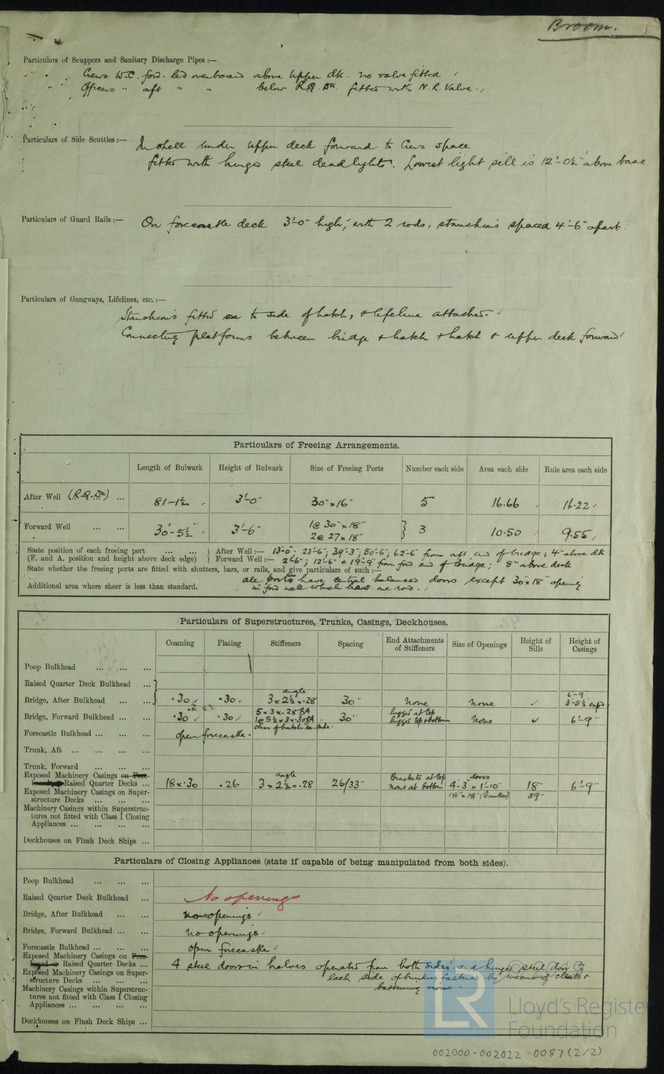 Broom.
Particulars of Scuppers and Sanitary Discharge Pipes :—
Crews W.C. ford. led overboard above upper dk. no valve fitted
Officers " aft " " below R.Q. Dk. fitted with N.R. Valve.
Particulars of Side Scuttles :— In shell under upper deck forward to Crews space
fitted with hinged steel deadlights. Lowest light sill is 12'-0½" above base
Particulars of Guard Rails :— On forecastle deck 3'-0" high, with 2 rods, stanchions spaced 4'-6" apart.
Particulars of Gangways, Lifelines, etc. :—
Stanchions fitted to side of hatch, & lifeline attached.
Connecting platforms between bridge & hatch & hatch & upper deck forward
Particulars of Freeing Arrangements.
Length of Bulwark Height of Bulwark Size of Freeing Ports Number each side Area each side Rule area each side
After Well (R.Q.Dk) ... 81-1½ 3'-0" 30" x 16" 5 16.66 16.22
Forward Well ... ... 30'-5½" 3'-6" 1 @ 30" x 18" 2 @ 27" x 18" } 3 10.50 9.55
State position of each freeing port ... ... After Well :— 13'-0"; 23'-6"; 39'-3"; 50'-6"; 62'-6" from aft end of bridge; 4" above dk
(F. and A. position and height above deck edge) Forward Well :— 2'-6"; 12'-6" & 19'-9" from ford end of Bridge; 8" above deck
State whether the freeing ports are fitted with shutters, bars, or rails, and give particulars of such :— all ports have central balanced doors except 30" x 18" opening
Additional area where sheer is less than standard. in ford well which has one rod.
Particulars of Superstructures, Trunks, Casings, Deckhouses.
Coaming Plating Stiffeners Spacing End Attachments of Stiffeners Size of Openings Height of Sills Height of Casings
Poop Bulkhead ... ... ...
Raised Quarter Deck Bulkhead ...
Bridge, After Bulkhead ... ... .30 .30 angle 3 x 2½ x .28 30" none none 6'-9"
Bridge, Forward Bulkhead ... ... .30 .30 5 x 3 x .28 BA 30" lugged at top none 6'-9"
Forecastle Bulkhead ... ... ... open forecastle.
Trunk, Aft ... ... ... ...
Trunk, Forward ... ... ...
Exposed Machinery Casings on Raised Quarter Decks ... 18 x .30 .26 angle 3 x 2½ x .28 26/33" Brackets at top none at bottom doors 4'-3" x 1'-10" 18" 6'-9"
Exposed Machinery Casings on Superstructure Decks ... ... ... 18" x 18" (Bunker) 39"
Machinery Casings within Superstructures not fitted with Class I Closing Appliances ... ... ... ...
Deckhouses on Flush Deck Ships ...
Particulars of Closing Appliances (state if capable of being manipulated from both sides).
Poop Bulkhead ... ... ...
Raised Quarter Deck Bulkhead ... No openings
Bridge, After Bulkhead ... ... no openings
Bridge, Forward Bulkhead ... ... no openings
Forecastle Bulkhead ... ... ... open forecastle
Exposed Machinery Casings on Raised Quarter Decks ... 4 steel doors in halves operated from both sides, and hinged steel door to
Exposed Machinery Casings on Superstructure Decks ... ... ... each side of bunker fastened by means of cleats &
battening irons.
Machinery Casings within Superstructures not fitted with Class I Closing Appliances ... ... ... ...
Deckhouses on Flush Deck Ships ...
LR
Lloyd's Register
Foundation
002000-002022-0087 (2/2)